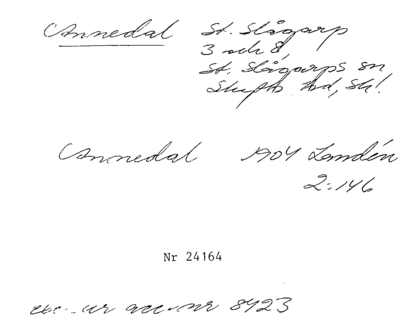 Annedal St. Slågarp
3 och 8,
St. Slågarps sn
Skytts hd, Sk!.
Annedal 1904 Landén
2:146
Nr 24164
exc. ur acc. nr 8423